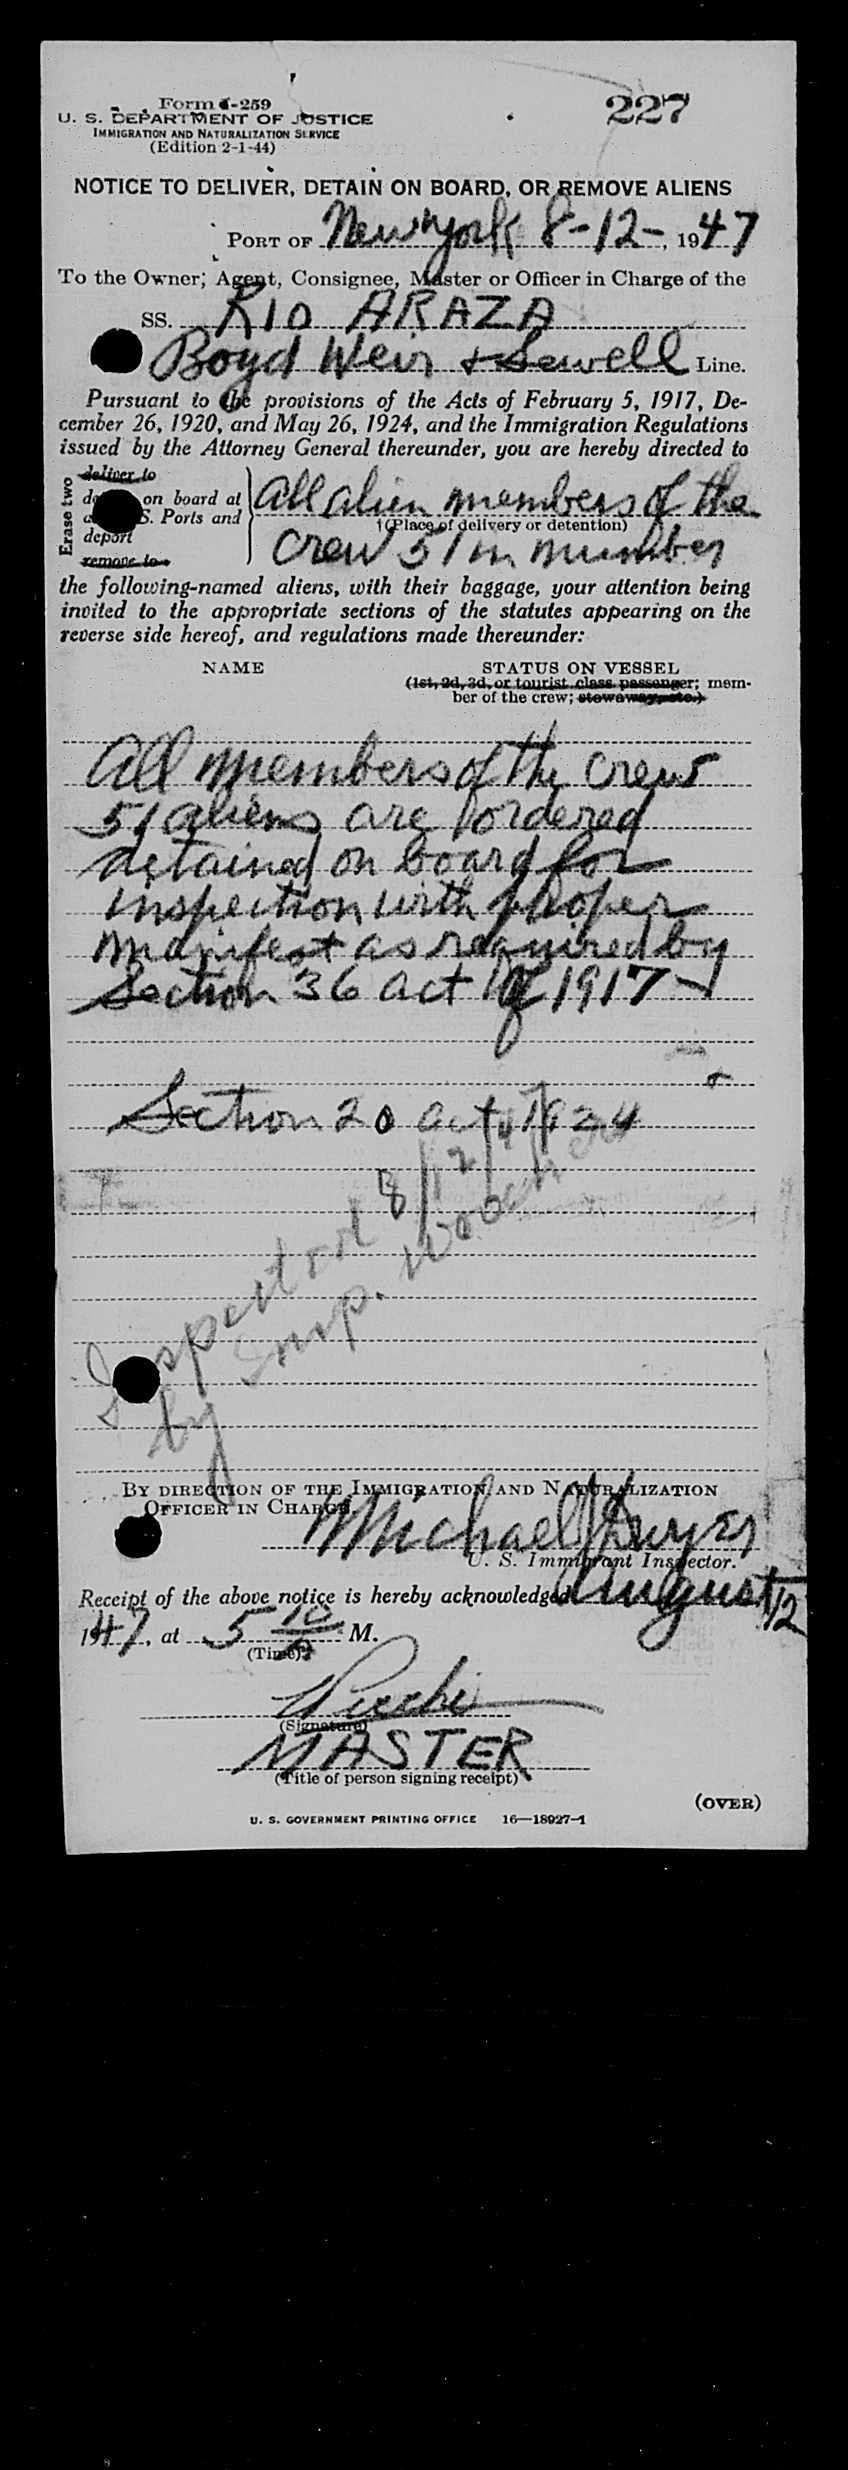 Form I-259
227
U. S. DEPARTMENT OF JUSTICE
IMMIGRATION AND NATURALIZATION SERVICE
(Edition 2-1-44)
NOTICE TO DELIVER, DETAIN ON BOARD, OR REMOVE ALIENS
PORT OF New York 8-12-, 1947
To the Owner, Agent, Consignee, Master or Officer in Charge of the
SS. RIO ARAZA
Boyd Weir & Sewell Line.
Pursuant to the provisions of the Acts of February 5, 1917, De-
cember 26, 1920, and May 26, 1924, and the Immigration Regulations
issued by the Attorney General thereunder, you are hereby directed to
Erase two
deliver to
on board at
S. Ports and
deport
remove to
all alien members of the
†(Place of delivery or detention)
Crew 51 in number
the following-named aliens, with their baggage, your attention being
invited to the appropriate sections of the statutes appearing on the
reverse side hereof, and regulations made thereunder:
NAME STATUS ON VESSEL
(1st, 2d, 3d, or tourist class passenger; mem-
ber of the crew; stowaway, etc.)
All members of the crew
51 aliens are ordered
detained on board for
inspection with proper
manifest as required by
Section 36 act of 1917 -
+
Section 20 act 1924
Inspected 8/12/47
by Insp.
BY DIRECTION OF THE IMMIGRATION AND NATURALIZATION
OFFICER IN CHARGE
Michael J Dwyer
U. S. Immigrant Inspector.
Receipt of the above notice is hereby acknowledged August 12
1947, at 5 10 P M.
(Time)
(Signature)
MASTER
(Title of person signing receipt)
(OVER)
U. S. GOVERNMENT PRINTING OFFICE 16—18927-1